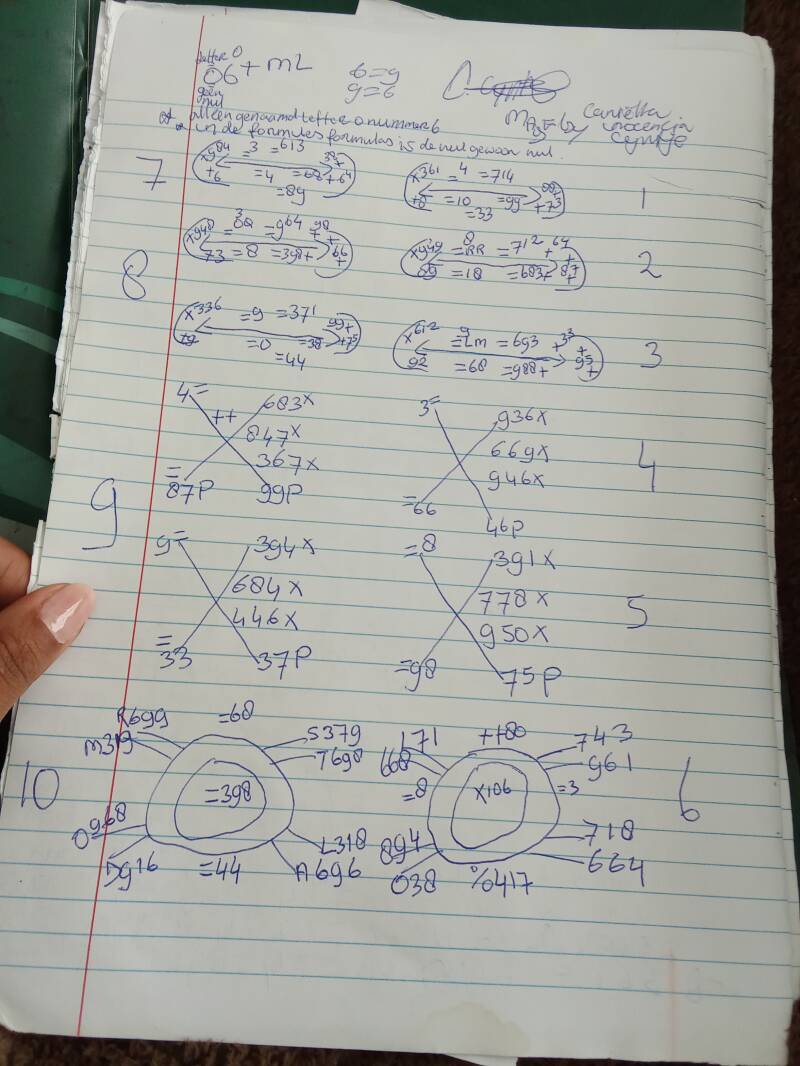 letter O
O6 + mL 6=9
geen 9=6
nul
alleen genaamd letter O nummer 6
in de formules formulas is de nul gewoon nul.
7 x984 =3 =613 x361 =4 =714 1
+6 =4 =68 +64 =10 =99 +73
=89 =33
8 x948 =964 +98 x949 =RR =712 +67 2
73 =8 =398+ 66+ 69 =18 =683+ 87+
x336 =9 =371 99+ x612 =Lm =693 +33 3
+9 =0 =38 +75 92 =68 =988+ 95+
=44
4= ++ 683x 3= 936x
847x 669x 4
367x 946x
9 =87P 99P =66 46P
9= 394x =8 391x
684x 778x 5
446x 950x
=33 37P =98 75P
R699 =68 S379 L71 ++80 743
M319 T698 668 961
10 =398 =8 x106 =3 6
O968 L318 894 718
D916 =44 A696 O38 %417 664